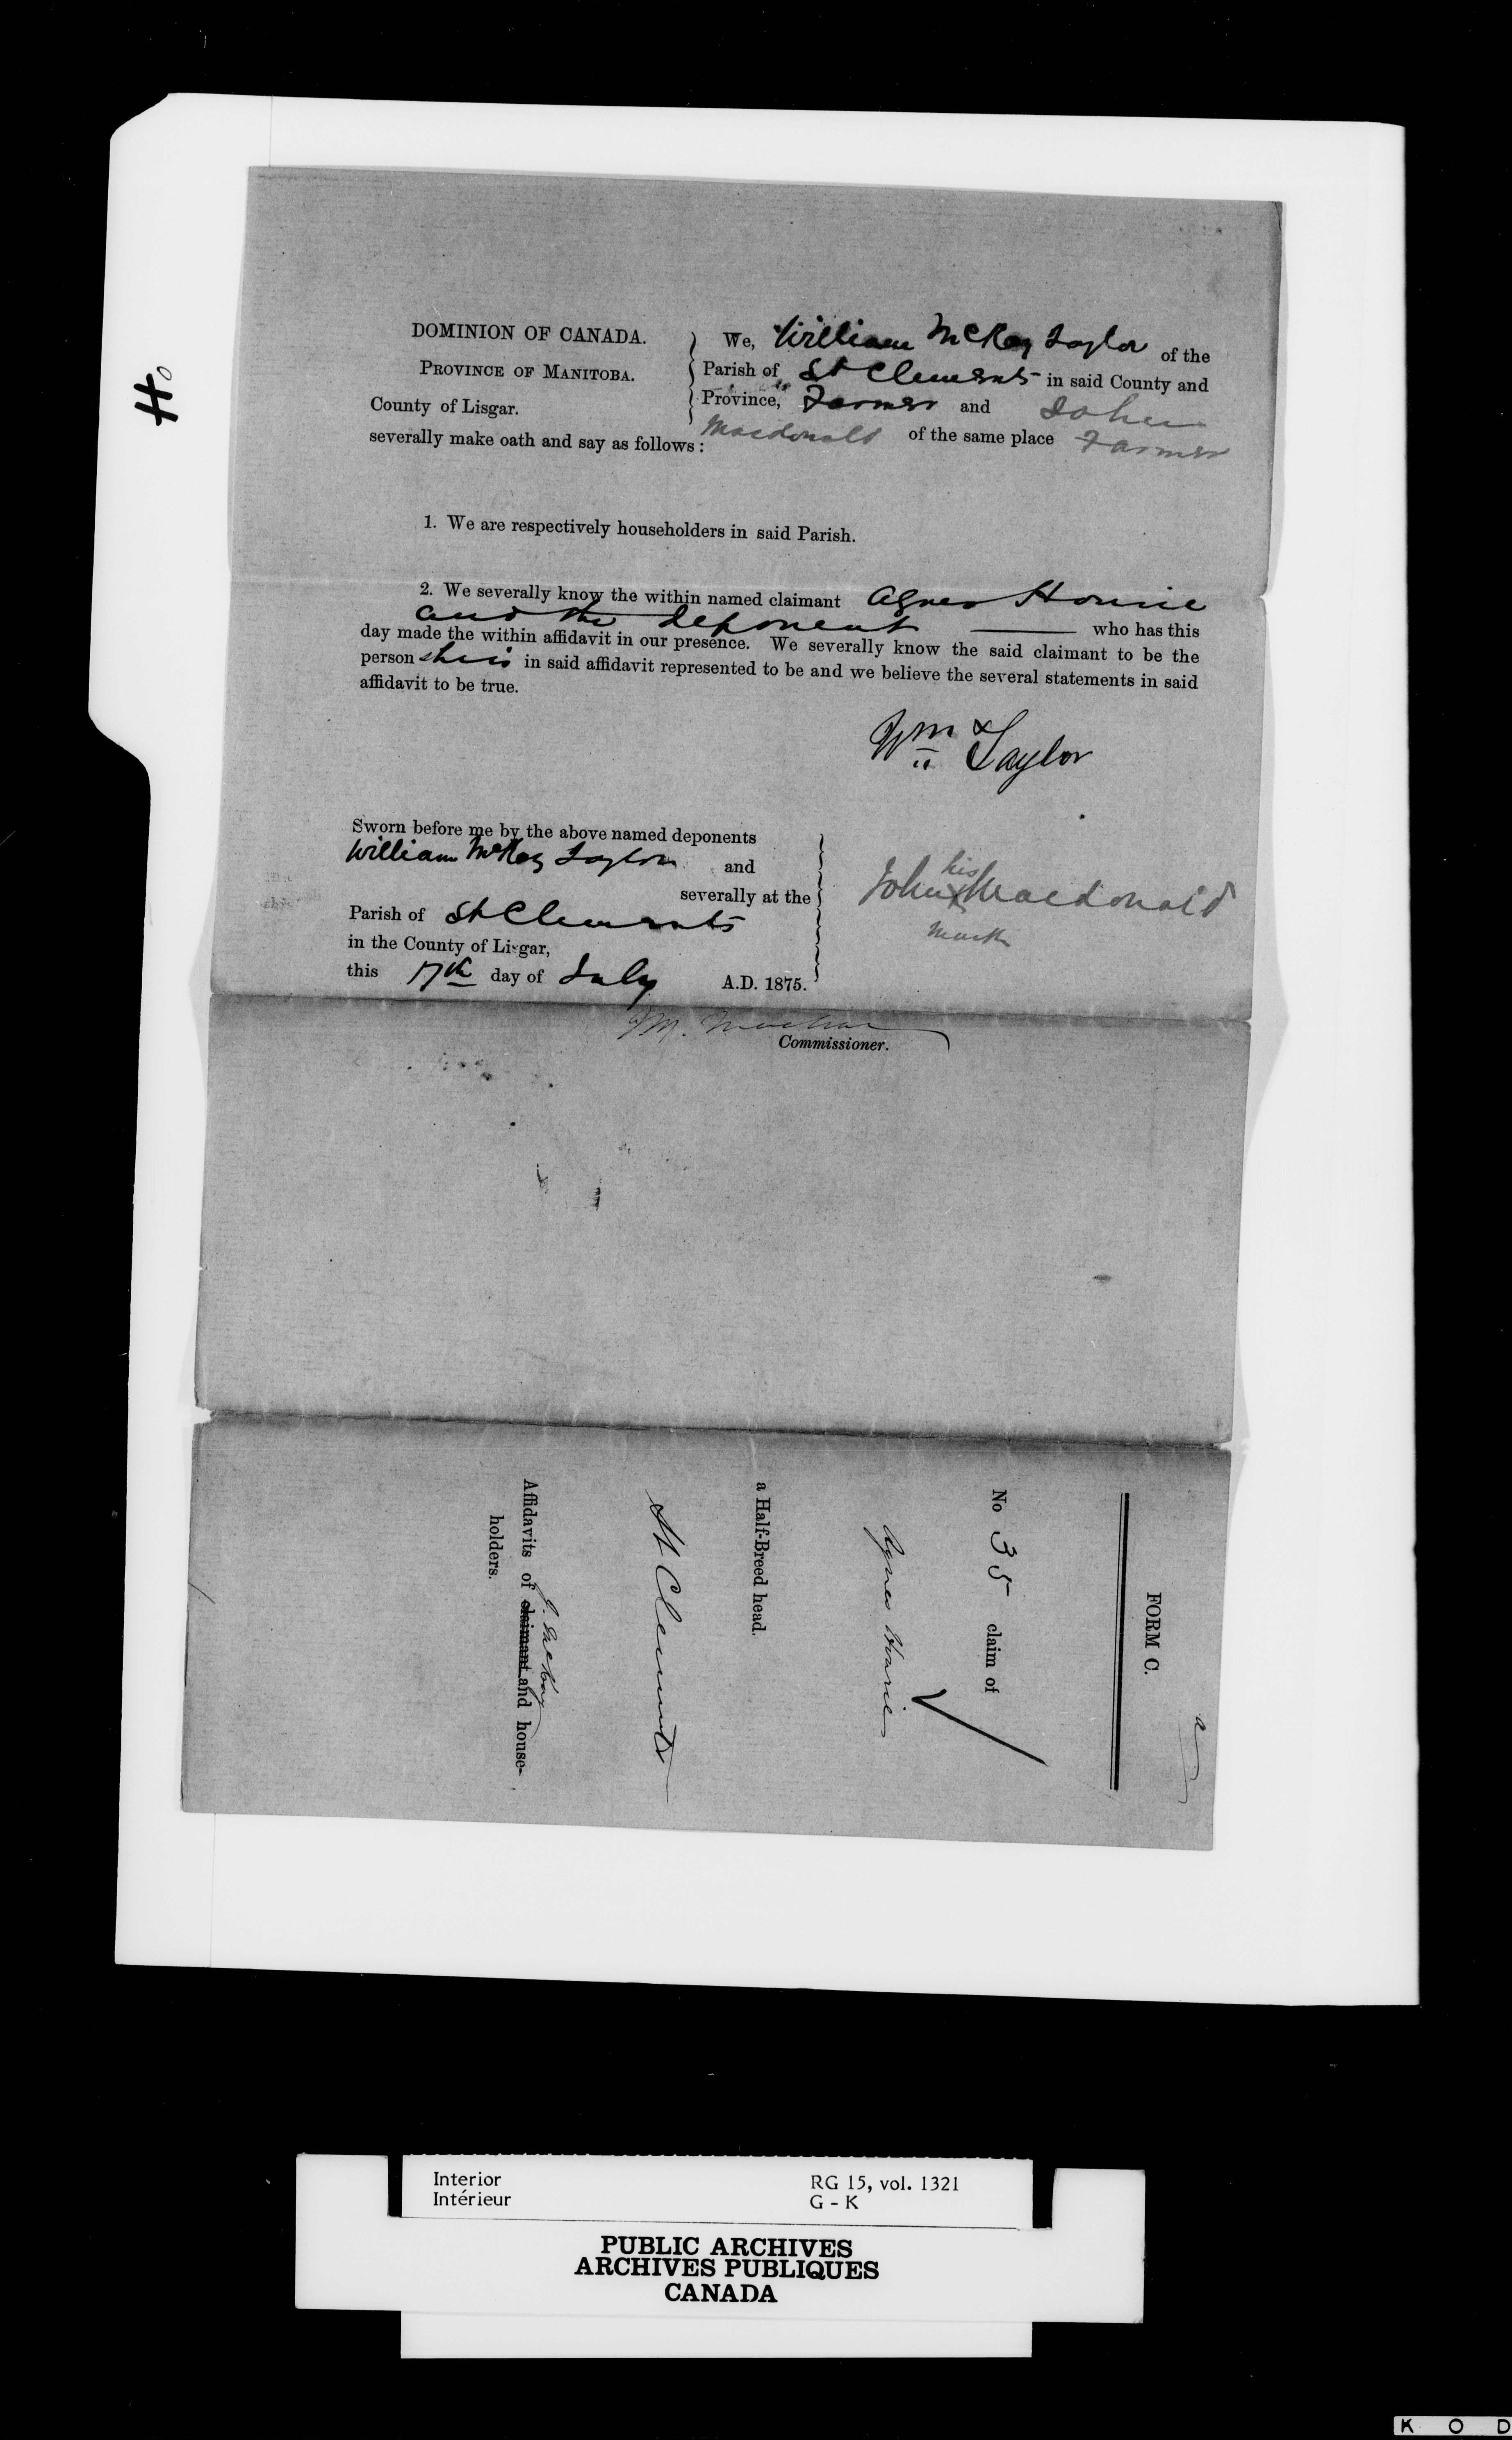 Ho
DOMINION OF CANADA.
PROVINCE OF MANITOBA.
County of Lisgar.
We, William McKay Taylor of the
Parish of St Clements in said County and
Province, Farmer and John
Macdonald of the same place Farmer
severally make oath and say as follows:
1. We are respectively householders in said Parish.
2. We severally know the within named claimant Agnes Hourie
and the deponent who has this
day made the within affidavit in our presence. We severally know the said claimant to be the
person she is in said affidavit represented to be and we believe the several statements in said
affidavit to be true.
Wm Taylor
Sworn before me by the above named deponents
William McKay Taylor and
severally at the
Parish of St Clements
in the County of Lisgar,
this 17th day of July A.D. 1875.
his
John X Macdonald
mark
Commissioner.
FORM C.
No 35 claim of
Agnes Hourie
a Half-Breed head.
St Clements
J. McKay
Affidavits of claimant and house-
holders.
Interior
Intérieur
RG 15, vol. 1321
G - K
PUBLIC ARCHIVES
ARCHIVES PUBLIQUES
CANADA
K O D